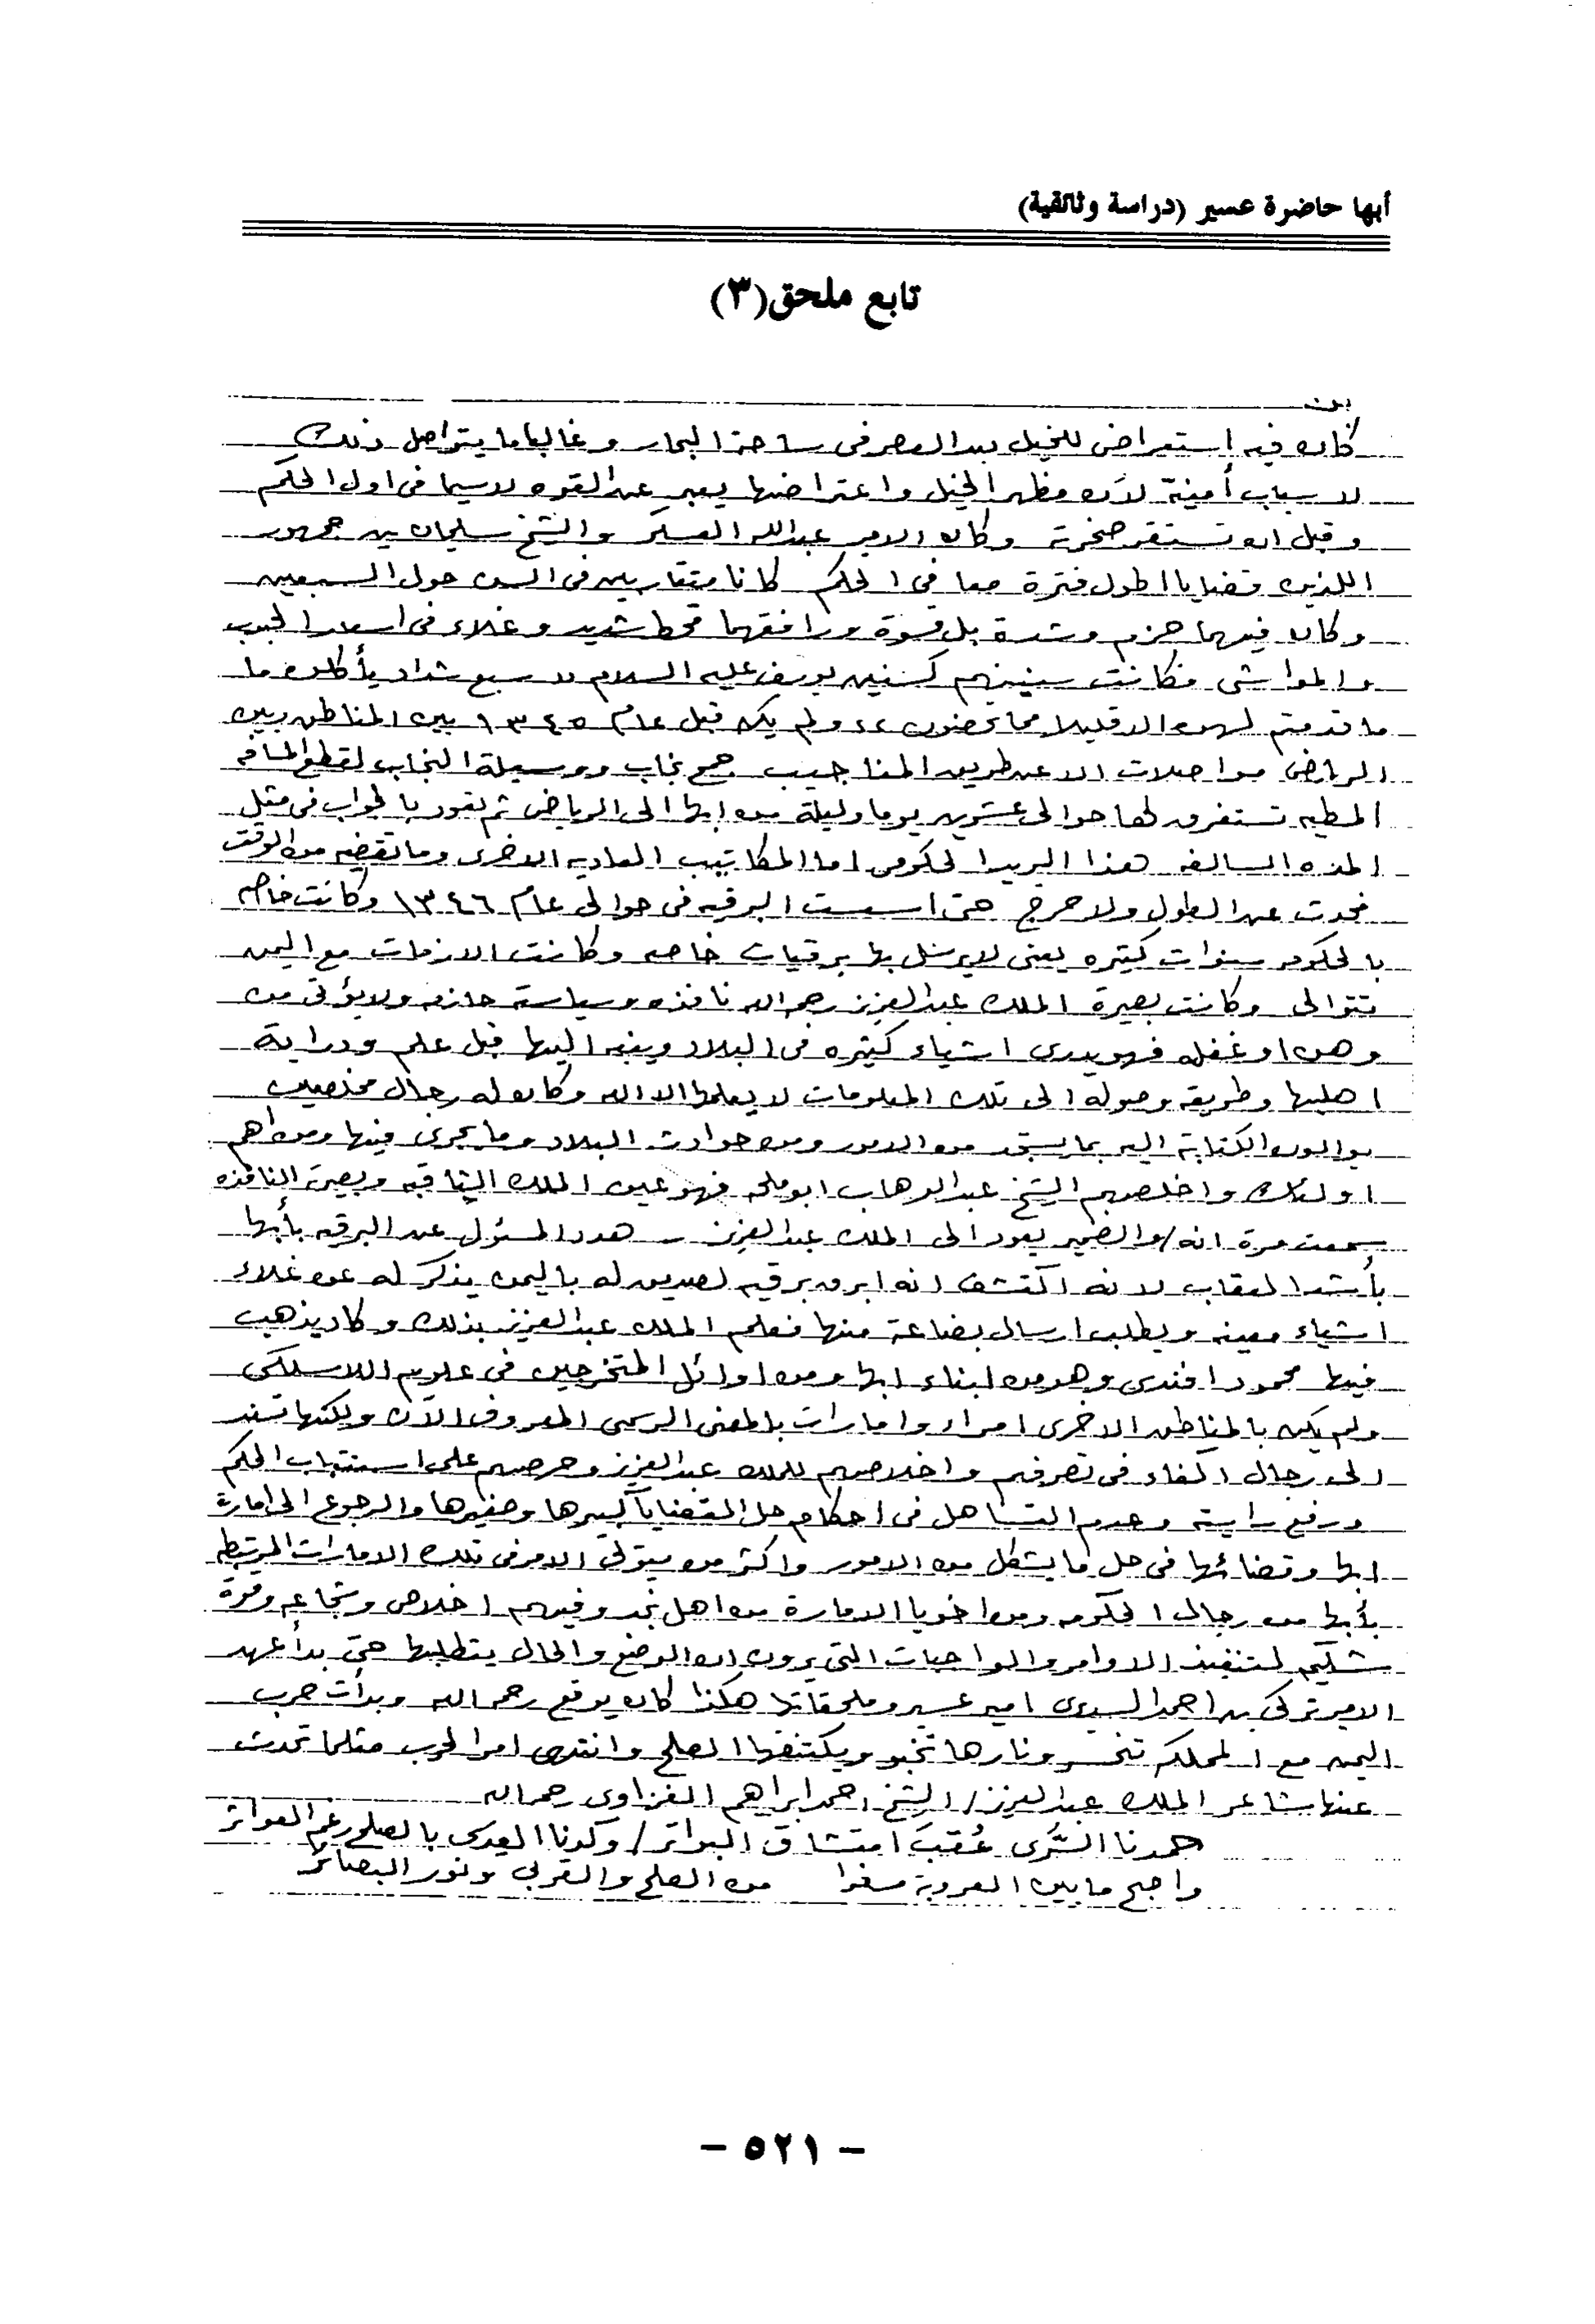 أبها حاضرة عسير (دراسة وثائقية)
تابع ملحق (٣)
كان فيه استعراض للخيل بعد العصر في ساحة البحار وغالباما يتواصل ذلك
لاسباب أمنية لأن مظهر الخيل واعتراضها يعبر عن القوه لاسيما في اول الحكم
وقبل ان تستقر صخرته وكان الامير عبدالله العسكر والشيخ سليمان بن جمهور
اللذين قضايا اطول فترة معا في الحكم كانا متقاربين في السن حول السبعين
وكان فيهما حزم وشدة بل قسوة ورافقهما قحط شديد وغلاء في اسعار الحبوب
والمواشي فكانت سنينهم كسنين يوسف عليه السلام " سبع شداد يأكلون ما
ما قدمتم لهن الا قليلا مما تحصنون " ولم يكن قبل عام ١٣٤٥ بين المناطق وبين
الرياض مواصلات الا عن طريق المناجيب جمع نجاب ووسيلة النجاب لقطع المسافه
المطيه تستغرق لها حوالي عشرين يوما وليلة من ابها الى الرياض ثم تعود بالجواب في مثل
المده السالفه هذا البريد الحكومي اما المكاتيب العاديه الاخرى وما تقضيه من الوقت
فحدث عن الطول ولا حرج حتى اسست البرقيه في حوالي عام ١٣٤٦ وكانت خاصه
بالحكومه سنوات كثيره يعني لا يرسل بها برقيات خاصه وكانت الازمات مع اليمن
تتوالى وكانت بصيرة الملك عبدالعزيز رحمه الله نافذه وسياسته حازمه ولا يؤتى من
وهن او غفله فهو يدري اشياء كثيره في البلاد وينبه اليها قبل علم ودراية
اهليها وطريقه وصوله الى تلك المعلومات لا يعلمها الا الله وكان له رجال مخلصين
يوالون الكتابة اليه بما يستجد من الامور ومن حوادث البلاد وما يجري فيها ومن اهم
اولئك واخلصهم الشيخ عبدالوهاب ابو ملحه فهو عين الملك الثاقبه وبصيرته النافذه
سمعت مرة انه/والضمير يعود الى الملك عبدالعزيز - هدد المسئول عن البرقيه بأبها
بأشد العقاب لانه اكتشف انه ابرق برقيه لصديق له باليمن يذكر له عن غلاء
اشياء معينه ويطلب ارسال بضاعة منها فعلم الملك عبدالعزيز بذلك وكاد يذهب
فيها محمود افندي وهو من ابناء ابها ومن اوائل المتخرجين في علوم اللاسلكي
ولم يكن بالمناطق الاخرى امراء وامارات بالمعنى الرسمي المعروف الآن ولكنها تسند
الى رجال اكفاء في تصرفهم واخلاصهم للملك عبدالعزيز وحرصهم على استتباب الحكم
ورفع رايته وعدم التساهل في احكام حل القضايا كبيرها وصغيرها والرجوع الى امارة
ابها وقضائها في حل ما يشكل من الامور واكثر من يتولى الامر في تلك الامارات المرتبطه
بأبها من رجال الحكومه ومن اخويا الامارة من اهل نجد وفيهم اخلاص وشجاعه وقوة
شكيم لتنفيذ الاوامر والواجبات التي يرون ان الوضع والحال يتطلبها حتى بدأ عهد
الامير تركي بن احمد السديري امير عسير وملحقاتها هكذا كان يوقع رحمه الله وبدأت حرب
اليمن مع المملكه تنحسر ونارها تخبو ويكتنفها الصلح وانتهى امر الحرب مثلما تحدث
عنها شاعر الملك عبدالعزيز/ الشيخ احمد ابراهيم الغزاوي رحمه الله
حمدنا السُّرى عُقبَ امتشاق البواتر/ وكدنا العدى بالصلح رغم العواثر
واجح ما بين العروبة مسفرا من الصلح والقربى ونور البصائر
- ٥٢١ -